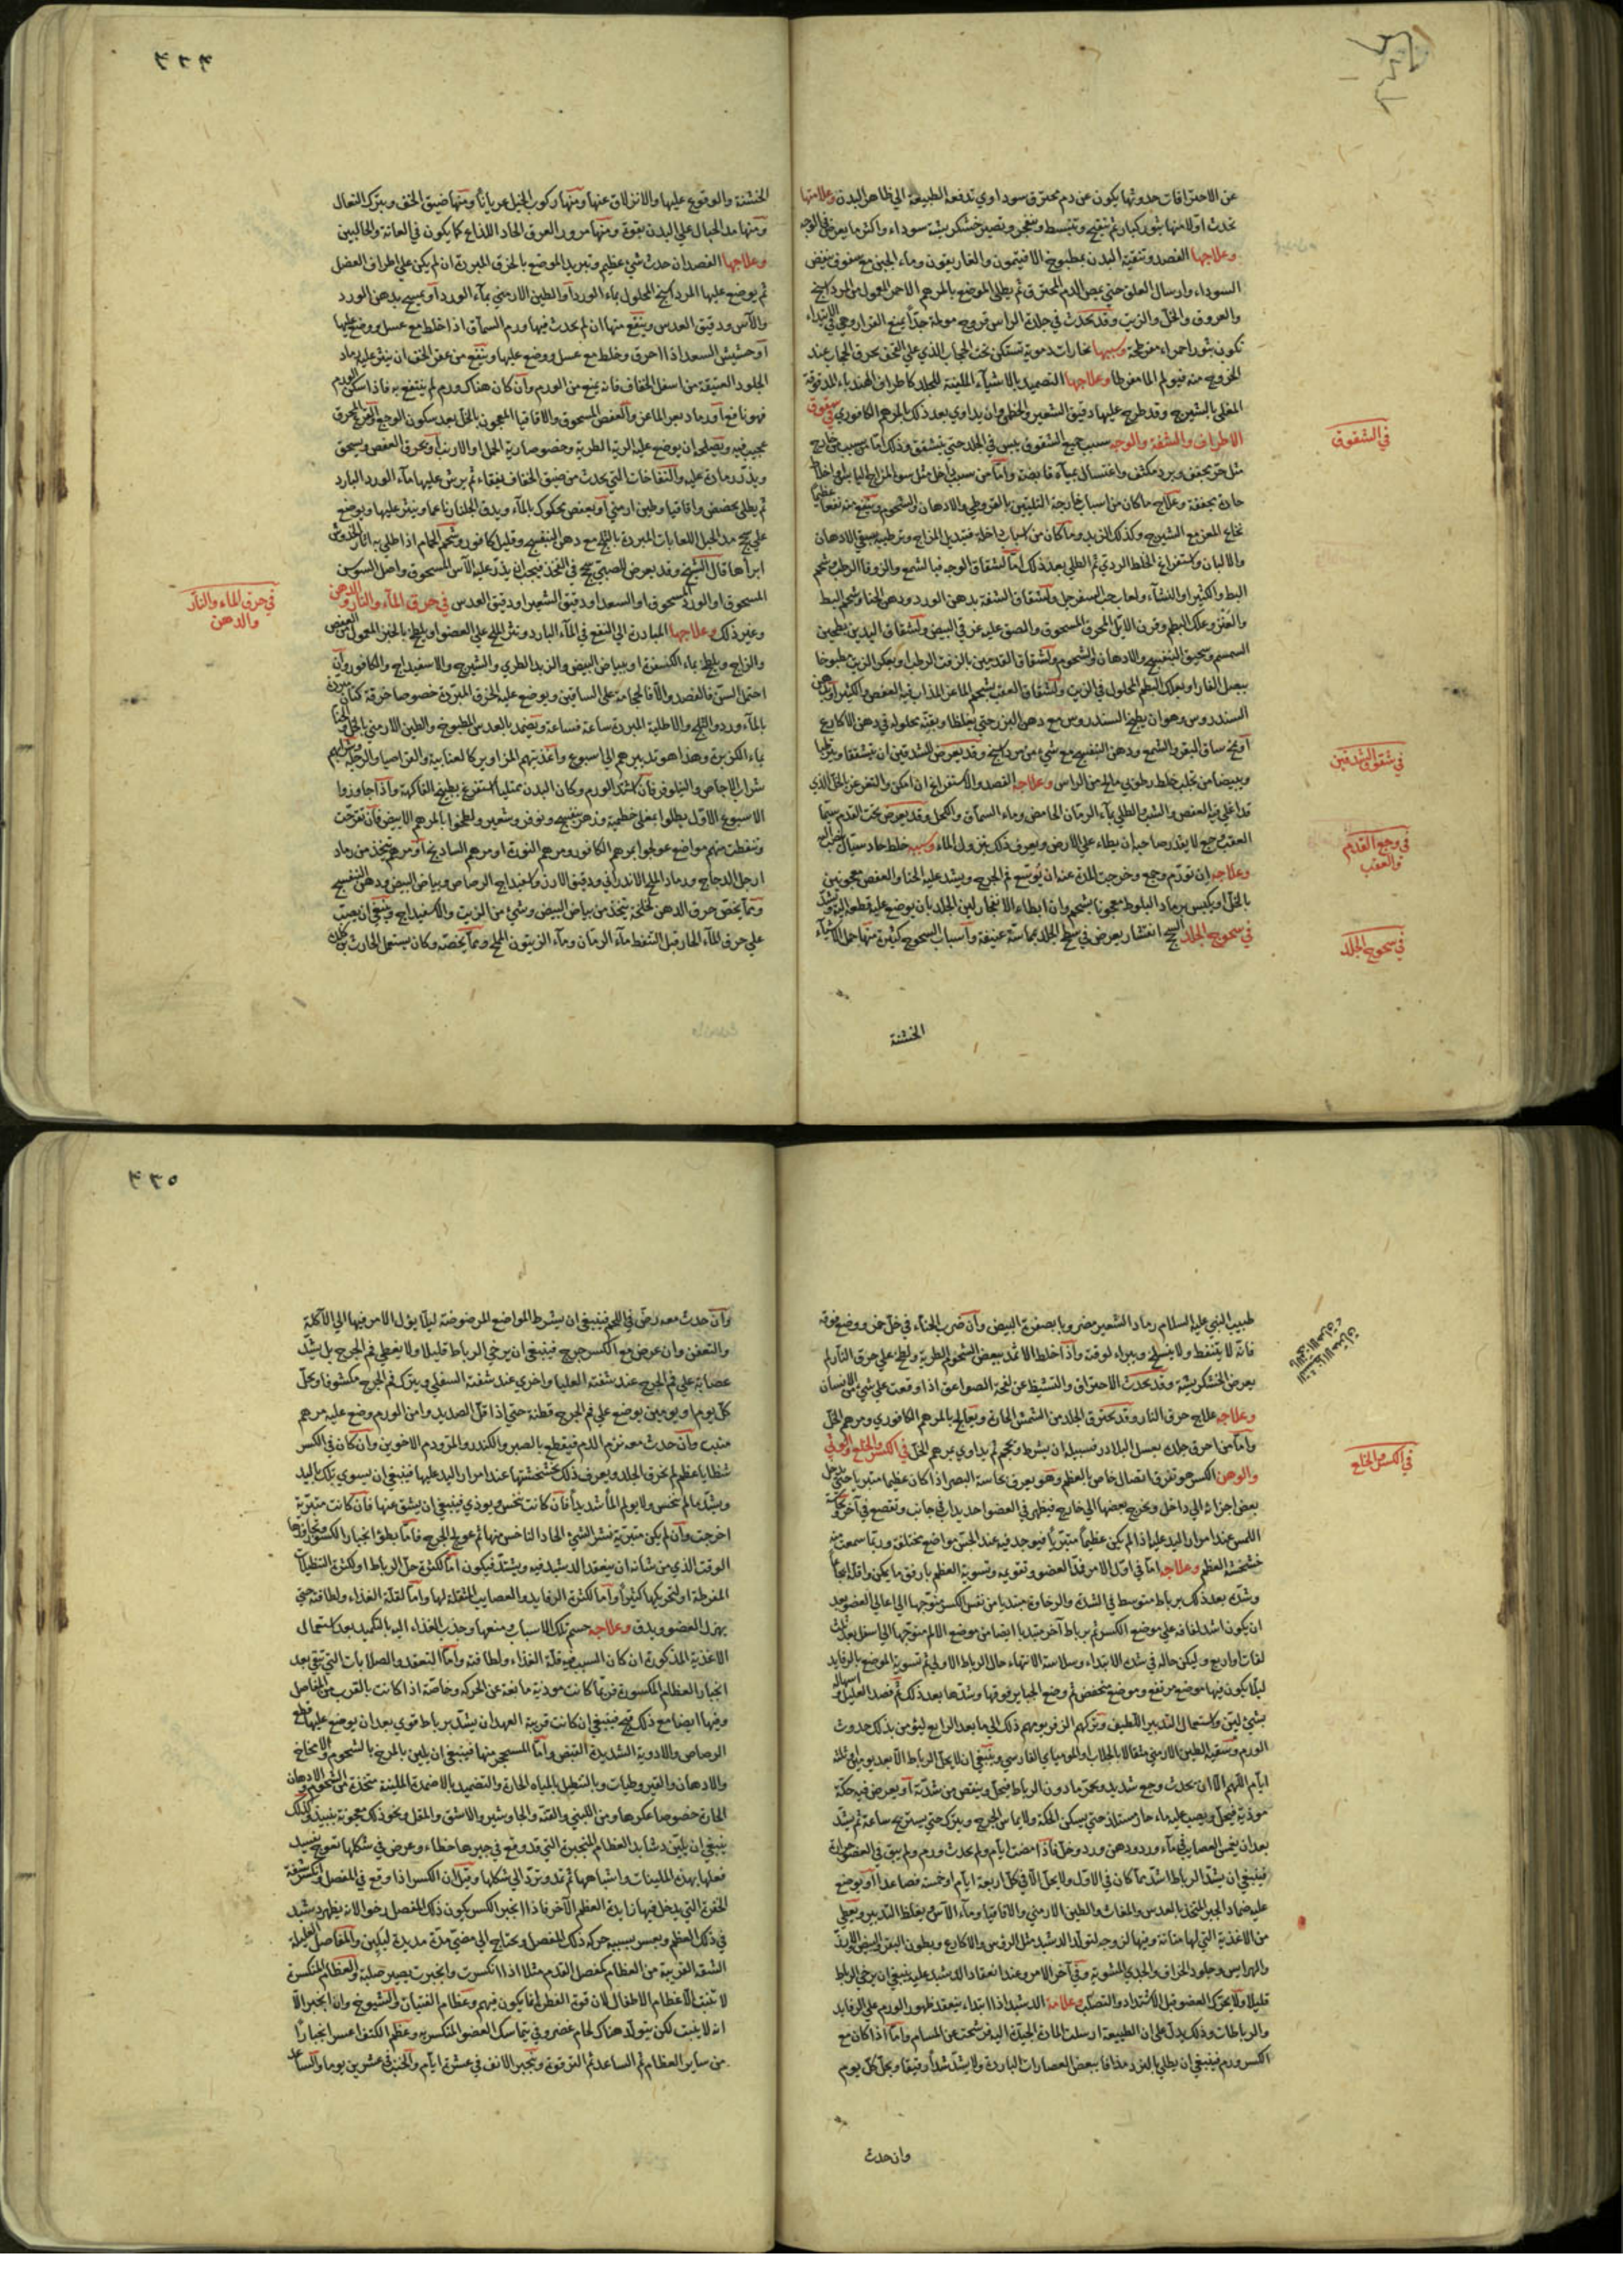 عن الاحتراقات حدوثها يكون عن دم محترق سوداوي تدفعه الطبيعة الي ظاهر البدن وعلامتها
تحدث اولا منها بثور كبار ثم تتقيح وتنبسط وتنفجر وتصير خشكريشة سوداء واكثر ما يعرض في الوجه
وعلاجها الفصد وتنقية البدن بمطبوخ الافتيمون والغاريقون وماء الجبن مع سفوف ينفض
السوداء وارسال العلق حتي يمص الدم المحترق ثم يطلي الموضع بالمرهم الاحمر المعمول من المرداسنج
والعروق والخل والزيت وقد تحدث في جلدة الراس قروح مولمة جدا يمنع القرار وهي في الابتداء
تكون بثورا حمراء مفرطحة وسببها بخارات دموية تستكن تحت الحجاب الذي علي القحف يحرق الحجاب عند
الخروج منه فيولم الما مفرطا وعلاجها التضميد بالاشياء الملينة للجلد كاطراف الهندباء المدقوقة
المغلي بالشيرج وقد طرح عليها دقيق الشعير والخطمي وان يداوي بعد ذلك بالمرهم الكافوري في شقوق
الاطراف والشفة والوجه سبب جميع الشقوق يبس في الجلد حتي ينشقق وذلك اما بسبب من خارج
مثل حر يجفف وبرد مكثف واغتسال بمياه قابضة واما من سبب داخل مثل سوء المزاج اليابس او اخلاط
حادة مجففة وعلاج ما كان من اسباب خارجة التليين بالقيروطي والادهان والشحوم وينتفع منه نفعا عظيما
نخاع المعز مع الشيرج وكذلك الزبد وما كان من اسباب داخلة فتبديل المزاج وترطيبه بسقي الادهان
والالبان واستفراغ الخلط الردي ثم الطلي بعد ذلك اما لشقاق الوجه فبالشمع والزوفا الرطب وشحم
البط والكثيرا والنشاء ولعاب حب السفرجل ولشقاق الشفة بدهن الورد ودهن الحنا وشحم البط
والعنزر وعلك البطم وقرن الايل المحرق المسحوق والصق عليه غرقي البيض ولشقاق اليدين بطحين
السمسم وسحيق البنفسج والادهان والشحوم ولشقاق القدمين بالزفت الرطب او بعكر الزيت مطبوخا
ببصل الفار او بعلك البطم المحلول في الزيت ولشقاق العقب بشحم الماعز المذاب فيه العفص والكثيرا وبدهن
السندروس وهو ان يطبخ السندروس مع دهن البزر حتي يغلظ او بقنة محلولة في دهن الاكارع
او مخ ساق البقر والشمع ودهن البنفسج مع شيء من مرداسنج وقد يعرض للشدقين ان ينشققا ويترطبا
ويبيضا من تجلب خلط رطوبي مالح من الراس وعلاجه الفصد والاستفراغ ان امكن والتغرغر بالخل الذي
قد اغلي فيه العفص والشب والطلي بماء الرمان الحامض وماء السماق والكحل وقد يعرض تحت القدم سيما
العقب وجع لا يقدر صاحبه ان يطاء علي الارض ويعرف ذلك بنزول الماء وسببه خلط حاد سيال
وعلاجه ان تورم وجع وخرجت المدة عنه ان يوسع فم الجرح ويشد عليه الحنا والعفص معجونين
بالخل او يكبس برماد البلوط معجونا بشحم وان ابطاء الانفجار لين الجلد بان يوضع عليه قطعة الية وتشد
في سحوج الجلد السحج انقشار يعرض في سطح الجلد بمماسة عنيفة واسباب السحوج كثيرة منها حمل الاشياء
في الشقوق
في شقوق الشدقين
في وجع القدم
والعقب
في سحوج الجلد
الخشنة
٤٣٤
الخشنة والوقوع عليها والانزلاق عنها ومنها ركوب الخيل عريانا ومنها ضيق الخف وبترك النعال
ومنها مد الحبال علي البدن بقوة ومنها مرور العرق الحاد اللذاع كما يكون في العانة والحالبين
وعلاجها الفصد ان حدث شيء عظيم وتبريد الموضع بالخرق المبردة ان لم يكن علي اطراف العضل
ثم يوضع عليها المرداسنج المحلول بماء الورد او الطين الارمني بماء الورد او يمسح بدهن الورد
والآس ودقيق العدس وينفع منها ان لم يحدث فيها ورم السماق اذا خلط مع عسل ووضع عليها
او حشيش السعد اذا احرق وخلط مع عسل ووضع عليها وينفع من عقر الخف ان ينثر عليه رماد
الجلود العتيقة من اسفل الخفاف فانه يمنع من الورم وان كان هناك ورم لم ينتفع به فاذا سكن الورم
فهو نافع او رماد بعر الماعز والعفص المسحوق والاقاقيا المعجون بالخل بعد سكون الوجع والقرع المحرق
عجيب فيه ويصلح ان يوضع عليه الرية الطرية وخصوصا رية الحمل او الارنب او يحرق العفص ويسحق
ويذر رماده عليه والنفاخات التي يحدث من ضيق الخفاف يفقاء ثم يرش عليها ماء الورد البارد
ثم يطلي بحضض واقاقيا وطين ارمني او بعفص محكوك بالماء ويدق الجلنار ناعما وينثر عليها ويوضع
علي سحج مد الحبل اللعابات المبردة بالثلج مع دهن البنفسج وقليل كافور وشحم الحمام اذا طلي به اثار الخدوش
ابراها قال الشيخ وقد يعرض للصبي سحج في الفخذ فيجب ان يذر عليه الآس المسحوق واصل السوسن
المسحوق او الورد المسحوق او السعد او دقيق الشعير او دقيق العدس في حرق الماء والنار والدهن
وغير ذلك وعلاجها المبادرة الي النقع في الماء البارد ونثر الملح علي العضو او يلطخ بالحبر المعمول من العفص
والزاج ويلطخ بماء الكسفرة او ببياض البيض والزبد الطري والشيرج والاسفيداج والكافور وان
احتمل السن فالفصد والا فالحجامة علي الساقين ويوضع عليه الخرق المبردة خصوصا خرقة كتان مبردة
بالماء ورد والثلج والاطلية المبردة ساعة فساعة ويضمد بالعدس المطبوخ والطين الارمني بالخل او الحنا
بماء الكزبرة وهذا هو تدبيرهم الي اسبوع واغذيتهم المزاوير كالعنابية والقراصيا والرجلة وشرابهم
شراب الاجاص والنيلوفر فان اشتد الورم وكان البدن ممتليا استفرغ بطبيخ الفاكهة واذا جاوزوا
الاسبوع الاول بطلوا بمغلي خطمية وزهر بنفسج ونوفر وشعير ولطخوا بالمرهم الابيض فان تقرحت
وتنفطت منهم مواضع عولجوا بمرهم الكافور ومرهم النورة او مرهم السادنج او مرهم يتخذ من رماد
ارجل الدجاج ورماد الملح الاندراني ودقيق الارز واسفيداج الرصاص وبياض البيض ودهن البنفسج
ومما يخص حرق الدهن لخلخة يتخذ من بياض البيض وشيء من الزيت والاسفيداج وينبغي ان يصب
علي حرق الماء الحار قبل التنفط ماء الرمان وماء الزيتون المملح ومما يخصه وكان يستعمل الحارث بن كلدة
في حرق الماء والنار
والدهن
طبيب النبي عليه السلام رماد الشعير مضروبا بصفرة البيض وان ضرب الحناء في خل خمر ووضع فوقه
فانه لا يتنفط ولا ينسلخ ويبراء لوقته واذا خلط الاثمد ببعض الشحوم الطرية ولطخ علي حرق النار لم
يعرض الخشكريشة وقد يحدث الاحتراق والتشيط عن لفحة الصواعق اذا وقعت علي شيء من الانسان
وعلاجه علاج حرق النار وقد يحترق الجلد من الشمس الحارة ويعالج بالمرهم الكافوري ومرهم الخل
واما من احرق جلده بعسل البلادر فسبيله ان يشرط ويحجم ثم يداوي بمرهم الخل في الكسر والخلع والوثي
والوهن الكسر هو تفرق اتصال خاص بالعظم وهو يعرف بحاسة البصر اذا كان عظيما متبريا حتي يدخل
بعض اجزاءه الي داخل ويخرج بعضها الي خارج فيظهر في العضو احديداب في جانب وتقصع في آخر وبحاسة
اللمس عند امرار اليد عليه اذا لم يكن عظيما متبريا فيوجد فيه عند الجس مواضع مختلفة وربما سمعت منه
خشخشة العظم وعلاجه اما في اول الامر فمد العضو وتقويمه وتسوية العظم بارفق ما يمكن واقله ايجاعا
وشده بعد ذلك برباط متوسط في الشدة والرخاوة مبتديا من نفس الكسر متوجها الي اعالي العضو بعد
ان يكون اشد لفافه علي موضع الكسر ثم برباط آخر مبتديا ايضا من موضع الالم متوجها الي اسفل بعد ثلث
لفات او اربع وليكن حاله في شدة الابتداء وسلاسة الانتهاء حال الرباط الاولي ثم تسوية الموضع بالرفايد
ليلا يكون فيها موضع مرتفع وموضع منخفض ثم وضع الجباير فوقها وشدها بعد ذلك ثم فصد العليل او اسهاله
بشيء لين واستعمال التدبير اللطيف وتركهم الزفر يومهم ذلك الي ما بعد الرابع ليؤمن بذلك حدوث
الورم وسقيه الطين الارمني مثقالا بالجلاب او الموميائي الفارسي وينبغي ان لا يحل الرباط الا بعد يومين او ثلثة
ايام اللهم الا ان يحدث وجع شديد ويحمر ما دون الرباط فيحل وينقص من شدته او يعرض فيه حكة
موذية فيحل ويصب عليه ماء حار مستلذ حتي يسكن الحكة ولا يماس الجرح ويترك حتي يستريح ساعة ثم يشد
بعد ان يغمس العصايب في ماء ورد ودهن ورد وخل فاذا مضت ايام ولم يحدث ورم ولم يبق في العضو حرارة
فينبغي ان يشد الرباط اشد مما كان في الاول ولا يحل الا في كل اربعة ايام او خمسة فصاعدا او يوضع
عليه ضماد الجبر المتخذ بالعدس والمغاث والطين الارمني والاقاقيا وماء الآس ويغلظ التدبير ويعطي
من الاغذية التي لها متانة وفيها لزوجة لتولد الدشبد مثل الرؤس والاكارع وبطون البقر والبيض والارز
والهرايس وجلود الخراف والجدي المشوية وفي آخر الامر وعند انعقاد الدشبد عليه ينبغي ان يرخي الرباط
قليلا ولا يحرك العضو قبل الاشتداد والتصلب وعلامة الدشبد اذا ابتداء ينعقد ظهور الورم علي الرفايد
والرباطات وذلك يدل علي ان الطبيعة ارسلت المادة الجيدة اليه فرشحت عن المسام واما اذا كان مع
الكسر ورم فينبغي ان يطلي بالفرد مذافا ببعض العصارات الباردة ولا يشد شدا رقيقا ويحل كل يوم
في الكسر والخلع
وان حدث
٤٣٥
وان حدث معه رض في اللحم فينبغي ان يشرط المواضع المرضوضة ليلا يؤل الامر فيها الي الآكلة
والتعفن وان عرض مع الكسر جرح فينبغي ان يرخي الرباط قليلا ولا يغطي فم الجرح بل يشد
عصابة علي فم الجرح عند شفته العليا واخري عند شفته السفلي ويترك فم الجرح مكشوفا ويحل
كل يوم او يومين يوضع علي فم الجرح قطنة حتي اذا قل الصديد وامن الورم وضع عليه مرهم
منبت وان حدث معه نزم الدم فيقطع بالصبر والكندر والمر ودم الاخوين وان كان في الكسر
شظايا عظم لم يخرق الجلد ويعرف ذلك بخشخشتها عند امرار اليد عليها فينبغي ان يسوي بتلك باليد
ويشد ما لم ينخس ولا يولم الما شديدا فان كانت تنخس ويوذي فينبغي ان يشق عنها فان كانت متبرية
اخرجت وان لم يكن متبرية نشر الشيء الحاد الناخس منها ثم عولج الجرح فاما بطوء انجبار الكسور وتجاوزها
الوقت الذي من شانه ان ينعقد الدشبد فيه ويشتد فيكون اما لكثرة حل الرباط او لكثرة التنطيلات
المفرطة او لتحريكها كثيرا واما لكثرة الرفايد والعصايب المثقلة لها واما لقلة الغذاء ولطافته حتي
يهزل العضو ويدق وعلاجه حسم تلك الاسباب ومنعها وجذب الغذاء اليه بالتكميد بعد استعمال
الاغذية المذكورة ان كان السبب فيه قلة الغذاء ولطافته واما التعقد والصلابات التي تبقي بعد
انجبار العظام المكسورة فربما كانت موذية مانعة عن الحركة وخاصة اذا كانت بالقرب من المفاصل
وفيها ايضا مع ذلك قبح فينبغي ان كانت قريبة العهد ان يشد برباط قوي بعد ان يوضع عليها قطع
الرصاص والادوية الشديدة القبض واما المستحجر منها فينبغي ان يلين بالمرخ بالشحوم والامخاخ
والادهان والقيروطيات وبالتنطيل بالمياه الحارة والتضميد بالاضمدة الملينة متخذة من الشحوم والادهان
الحارة خصوصا عكرها ومن اللبني والقنة والجاوشير والاشق والمقل ونحو ذلك معجونة بنبيذ وكذلك
ينبغي ان يلين دشابد العظام المنجبرة التي قد وقع في جبرها خطاء وعرض في شكلها تعوج
فعلها بهذه الملينات واشباهها ثم تمد وترد الي شكلها وقيل ان الكسر اذا وقع في المفصل وانكسر شفة
الحفرة التي يدخل فيها زايدة العظم الآخر فاذا انجبر الكسر يكون ذلك المفصل رخوا لانه يظهر دشبد
في ذلك العظم ويعسر بسببه حركة ذلك المفصل ويحتاج الي مضي مدة مديدة ليلين والمفاصل القليلة
الشق القريبة من العظام كمفصل القدم مثلا اذا انكسرت وانجبرت يصير صلبة والعظام المنكسرة
لا تنبت الا عظام الاطفال لان قوة الفطر انما يكون فيهم وعظام الفتيان والشيوخ وان انجبر الا
انه لا ينبت لكن يتولد هناك لحام غضروفي يتماسك العضو المنكسر به وعظم الكتف اعسر انجبارا
من ساير العظام ثم الساعد ثم الترقوة وتجبر الانف في عشرة ايام والجنب في عشرين يوما والساعد